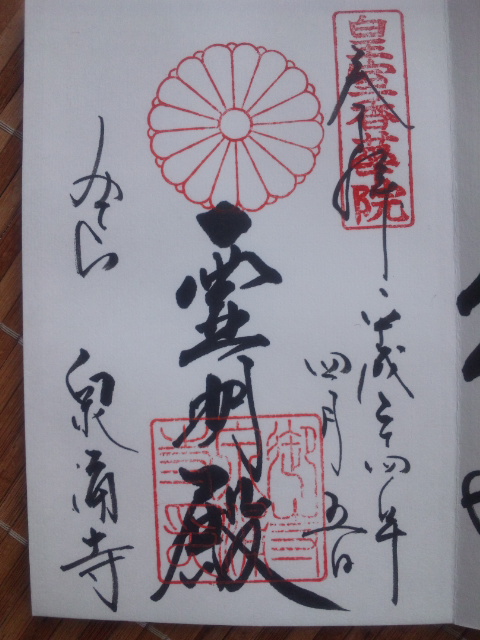 皇室香華院
奉拝
平成二十四年
四月五日
霊明殿
御寺
泉涌寺